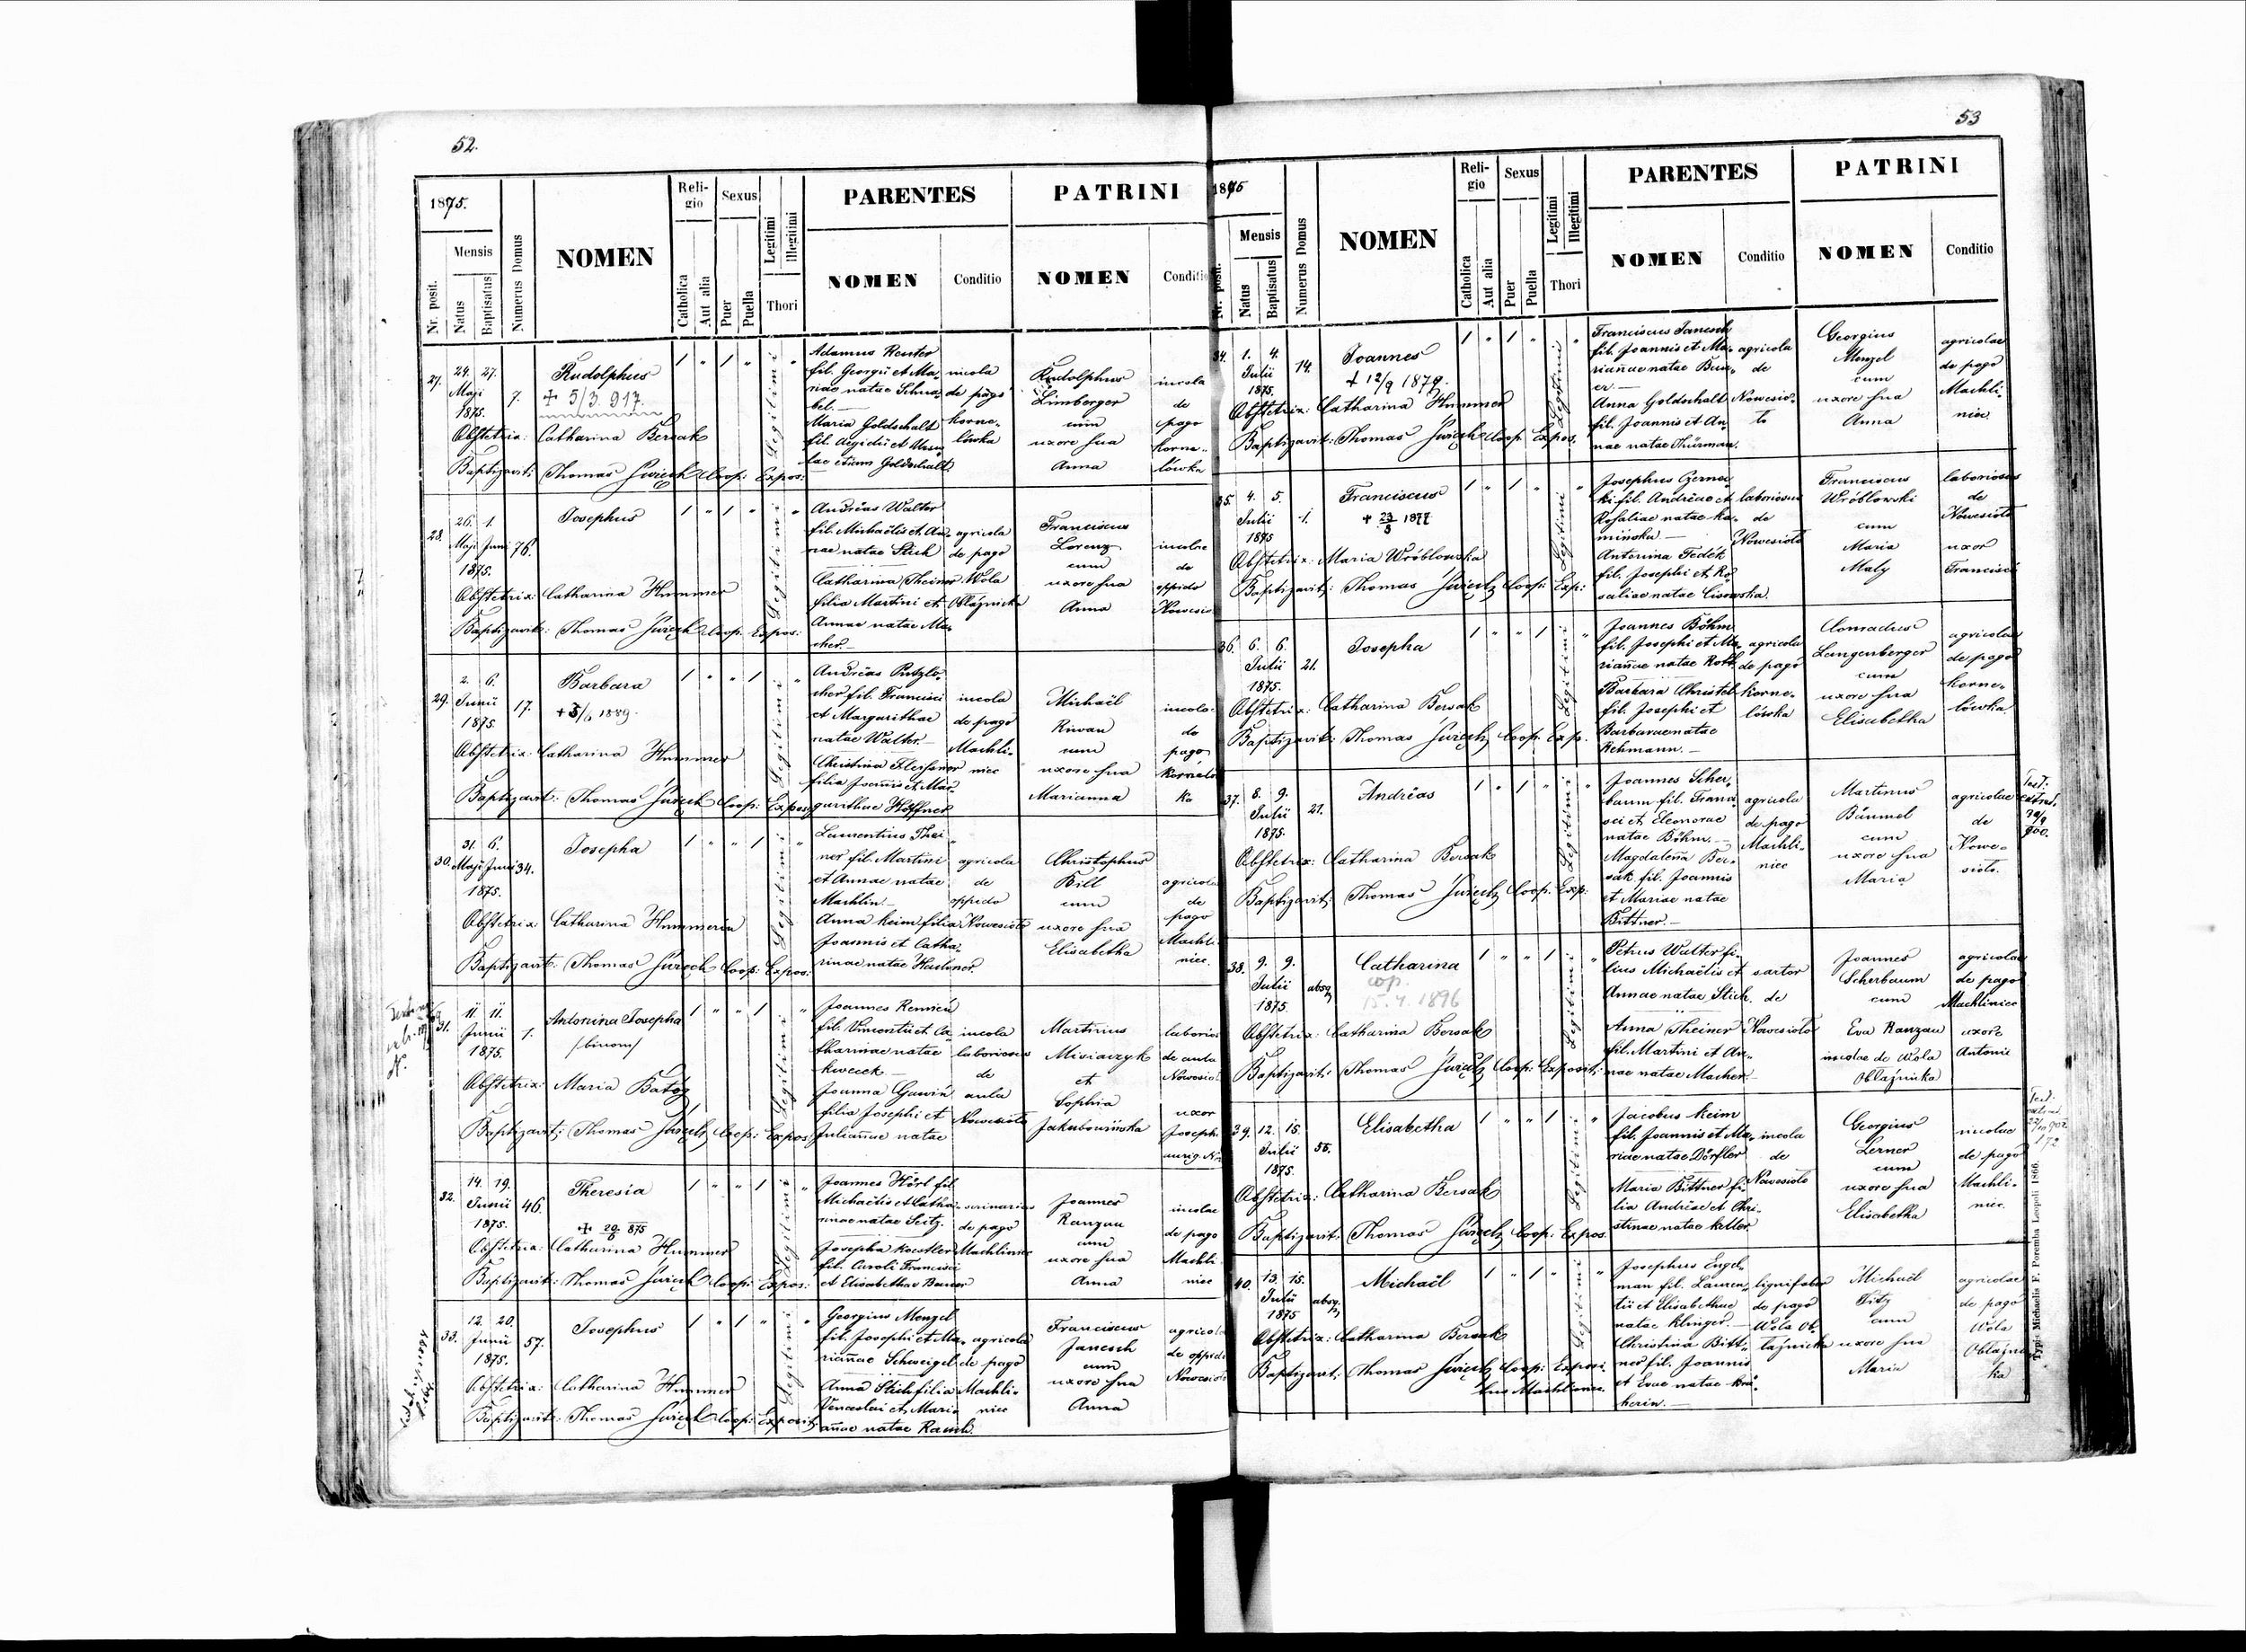 52.
1875.
Nr. posit.
Mensis
Natus
Baptisatus
Numerus Domus
NOMEN
Reli-
gio
Catholica
Aut alia
Sexus
Puer
Puella
Legitimi
Illegitimi
Thori
PARENTES
NOMEN
Conditio
PATRINI
NOMEN
Conditio
27.
24. 27.
Maji
1875.
7.
Rudolphus
+ 5/3. 917.
Obstetrix: Catharina Bersak
Baptizavit: Thomas Swięch Coop: Expos:
Legitimi
Adamus Reuter
fil. Georgii et Ma-
riae natae Schna-
bel.
Maria Goldschalt
fil. Aegidii et Ursu-
lae etiam Goldschalt
incola
de pago
Korne-
lówka
Rudolphus
Limberger
cum
uxore sua
Anna
incola
de
pago
Korne-
lówka
28.
26. 1.
Maji Juni
1875.
76.
Josephus
Obstetrix: Catharina Hummer
Baptizavit: Thomas Swięch Coop: Expos:
Legitimi
Andréas Walter
fil. Michaëlis et An-
nae natae Stich
Catharina Theiner
filia Martini et
Annae natae Ma-
cher.
agricola
de pago
Wola
Obłáznicka
Franciscus
Lorenz
cum
uxore sua
Anna
incolae
de
oppido
Nowesio
29.
2. 6.
Junii
1875
17.
Barbara
1889.
Obstetrix: Catharina Hummer
Baptizavit: Thomas Swięch Coop: Expos:
Legitimi
Andréas Putzlo-
cher fil. Francisci
et Margarithae
natae Walter.
Christina Fleissner
filia Joannis et Mar-
garithae Höffner
incola
de pago
Machli-
niec
Michaël
cum
uxore sua
Marianna
incola
de
pago
ka
30.
31. 6.
Maji Juni
1875.
34.
Josepha
Obstetrix: Catharina Hummerin
Baptizavit: Thomas Swięch Coop: Expos:
Legitimi
Laurentius Thei-
ner fil. Martini
et Annae natae
Machlin.
Anna Keim filia
Joannis et Catha-
rinae natae
agricola
de
oppido
Nowesioło
Christophus
Bill
cum
uxore sua
Elisabetha
agricola
de
pago
Machli-
niec.
31.
11. 11.
Junii
1875.
1.
Antonina Josepha
/binom/
Obstetrix: Maria Batóg
Baptizavit: Thomas Swięch Coop: Expos:
Legitimi
Joannes
fil. Vincentii et Ca-
tharinae natae
Joanna Gawin
filia Josephi et
Juliannae natae
incola
laboriosus
de
aula
Nowesioło
Martinus
Misiaczyk
et
Sophia
Jakubowińska
laborios
de aula
Nowesio
uxor
Joseph
32.
14. 19.
Junii
1875.
46.
Theresia
+ 29/6 875
Obstetrix: Catharina Hummer
Baptizavit: Thomas Swięch Coop: Expos:
Legitimi
Joannes Hörl fil.
Michaëlis et Catha-
rinae natae Seitz.
Josepha Koestler
fil. Caroli Francisci
et Elisabethae Bauer
de pago
Machliniec
Joannes
Ranzau
cum
uxore sua
Anna
incolae
de pago
Machli-
niec
33.
12. 20.
Junii
1875.
57.
Josephus
Obstetrix: Catharina Hummer
Baptizavit: Thomas Swięch Coop: Exposit:
Legitimi
Georgius Menzel
fil. Josephi et Ma-
riannae Schweigel
Anna Stich filia
Venceslai et Mari-
annae natae Rauch.
agricola
de pago
Machli-
niec
Franciscus
Janesch
cum
uxore sua
Anna
agricol
de oppid
Nowesio
53
1875
Nr. posit.
Mensis
Natus
Baptisatus
Numerus Domus
NOMEN
Reli-
gio
Catholica
Aut alia
Sexus
Puer
Puella
Legitimi
Illegitimi
Thori
PARENTES
NOMEN
Conditio
PATRINI
NOMEN
Conditio
34.
1. 4.
Julii
1875.
14.
Joannes
+ 12/9 1879.
Obstetrix: Catharina Hummer
Baptizavit: Thomas Swięch Coop. Expos.
Legitimi
Franciscus Janesch
fil. Joannis et Ma-
riannae natae Bau-
er.
Anna Goldschalt
fil. Joannis et An-
nae natae Thürman.
agricola
de
Nowesio-
ło
Georgius
Menzel
cum
uxore sua
Anna
agricolae
de pago
Machli-
niec
35.
4. 5.
Julii
1875
1.
Franciscus
+ 23/3 1877
Obstetrix: Maria Wróblowska
Baptizavit: Thomas Swięch Coop. Exp:
Legitimi
Josephus Czerna-
ki fil. Andréae et
Rosaliae natae Ka-
mińska
Antonina Fedék
fil. Josephi et Ro-
saliae natae Lisowska.
laboriosus
de
Nowesioło
Franciscus
Wróblowski
cum
Maria
Mały
laboriosus
de
Nowesioło
uxor
Francisci
36.
6. 6.
Julii
1875.
21.
Josepha
Obstetrix: Catharina Bersak
Baptizavit: Thomas Swięch Coop. Exp.
Legitimi
Joannes Böhm
fil. Josephi et Ma-
riannae natae Rott
Barbara Christel
fil. Josephi et
Barbarae natae
Rehmann.
agricola
de pago
Korne-
lówka
Conradus
Langenberger
cum
uxore sua
Elisabetha
agricolae
de pago
Korne-
lówka.
37.
8. 9.
Julii
1875.
21.
Andréas
Obstetrix: Catharina Bersak
Baptizavit: Thomas Swięch Coop. Exp.
Legitimi
Joannes Scher-
baum fil. Franci-
sci et Eleonorae
natae Böhm.
Magdalena Ber-
sak fil. Joannis
et Mariae natae
Bittner.
agricola
de pago
Machli-
niec
Martinus
Bäumel
cum
uxore sua
Maria
agricolae
de
Nowe-
sioło.
38.
9. 9.
Julii
1875.
absq
Catharina
cop.
15. 4. 1896
Obstetrix: Catharina Bersak
Baptizavit: Thomas Swięch Coop: Exposit:
Legitimi
Petrus Walter fi-
lius Michaëlis et
Annae natae Stich.
Anna Theiner
fil. Martini et An-
nae natae Macher.
sartor
de
Nowesioło
Joannes
Scherbaum
cum
Eva Ranzau
incolae de Wola
Obłaźnicka
agricolae
de pago
Machliniec
uxore
Antonii
39.
12. 15.
Julii
1875.
55.
Elisabetha
Obstetrix: Catharina Bersak
Baptizavit: Thomas Swięch Coop: Expos.
Legitimi
Jacobus Keim
fil. Joannis et Ma-
riae natae Dörfler
Maria Bittner fi-
lia Andréae et Chri-
stinae natae Keller
incola
de
Nowesioło
Georgius
Lerner
cum
uxore sua
Elisabetha
incolae
de pago
Machli-
niec.
40.
13. 15.
Julii
1875
absq.
Michaël
Obstetrix: Catharina Bersak
Baptizavit: Thomas Swięch Coop: Exposi-
tus Machliniec.
Legitimi
Josephus Engel-
man fil. Lauren-
tii et Elisabethae
natae Klinger.
Christina Bitt-
ner fil. Joannis
et Evae natae
herin.
lignifaber
de pago
Wola Ob-
łaźnicka
Michaël
cum
uxore sua
Maria
agricolae
de pago
Wola
Obłaźnic
ka
Typis Michaelis F. Poremba Leopoli 1866.